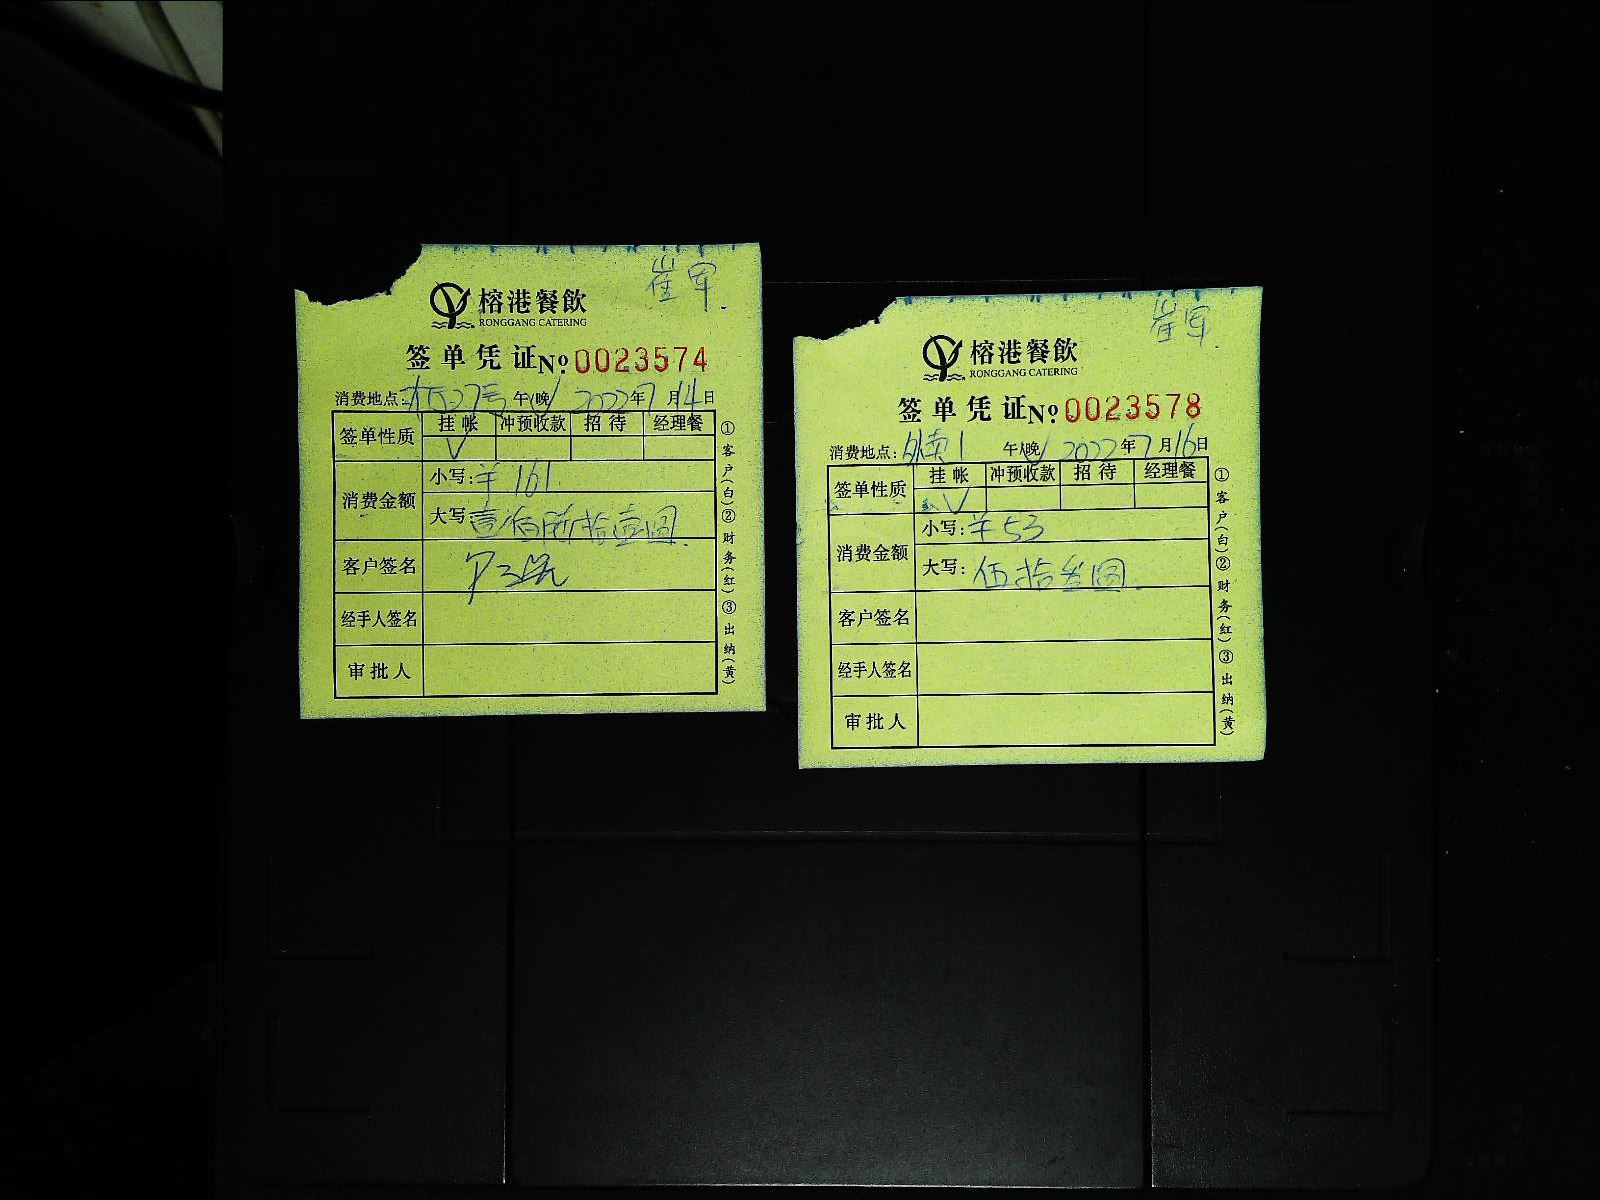 崔军.
榕港餐飲
RONGGANG CATERING
签单凭证 No 0023574
消费地点: 27号 午/晚√ 2022年7月14日
签单性质 挂帐 冲预收款 招待 经理餐
√
消费金额 小写:￥161
大写:壹佰陆拾壹圆.
客户签名
经手人签名
审批人
①客户(白)②财务(红)③出纳(黄)
崔军.
榕港餐飲
RONGGANG CATERING
签单凭证 No 0023578
消费地点:外卖1 午/晚√ 2022年7月16日
签单性质 挂帐 冲预收款 招待 经理餐
√
消费金额 小写:￥53
大写:伍拾叁圆.
客户签名
经手人签名
审批人
①客户(白)②财务(红)③出纳(黄)